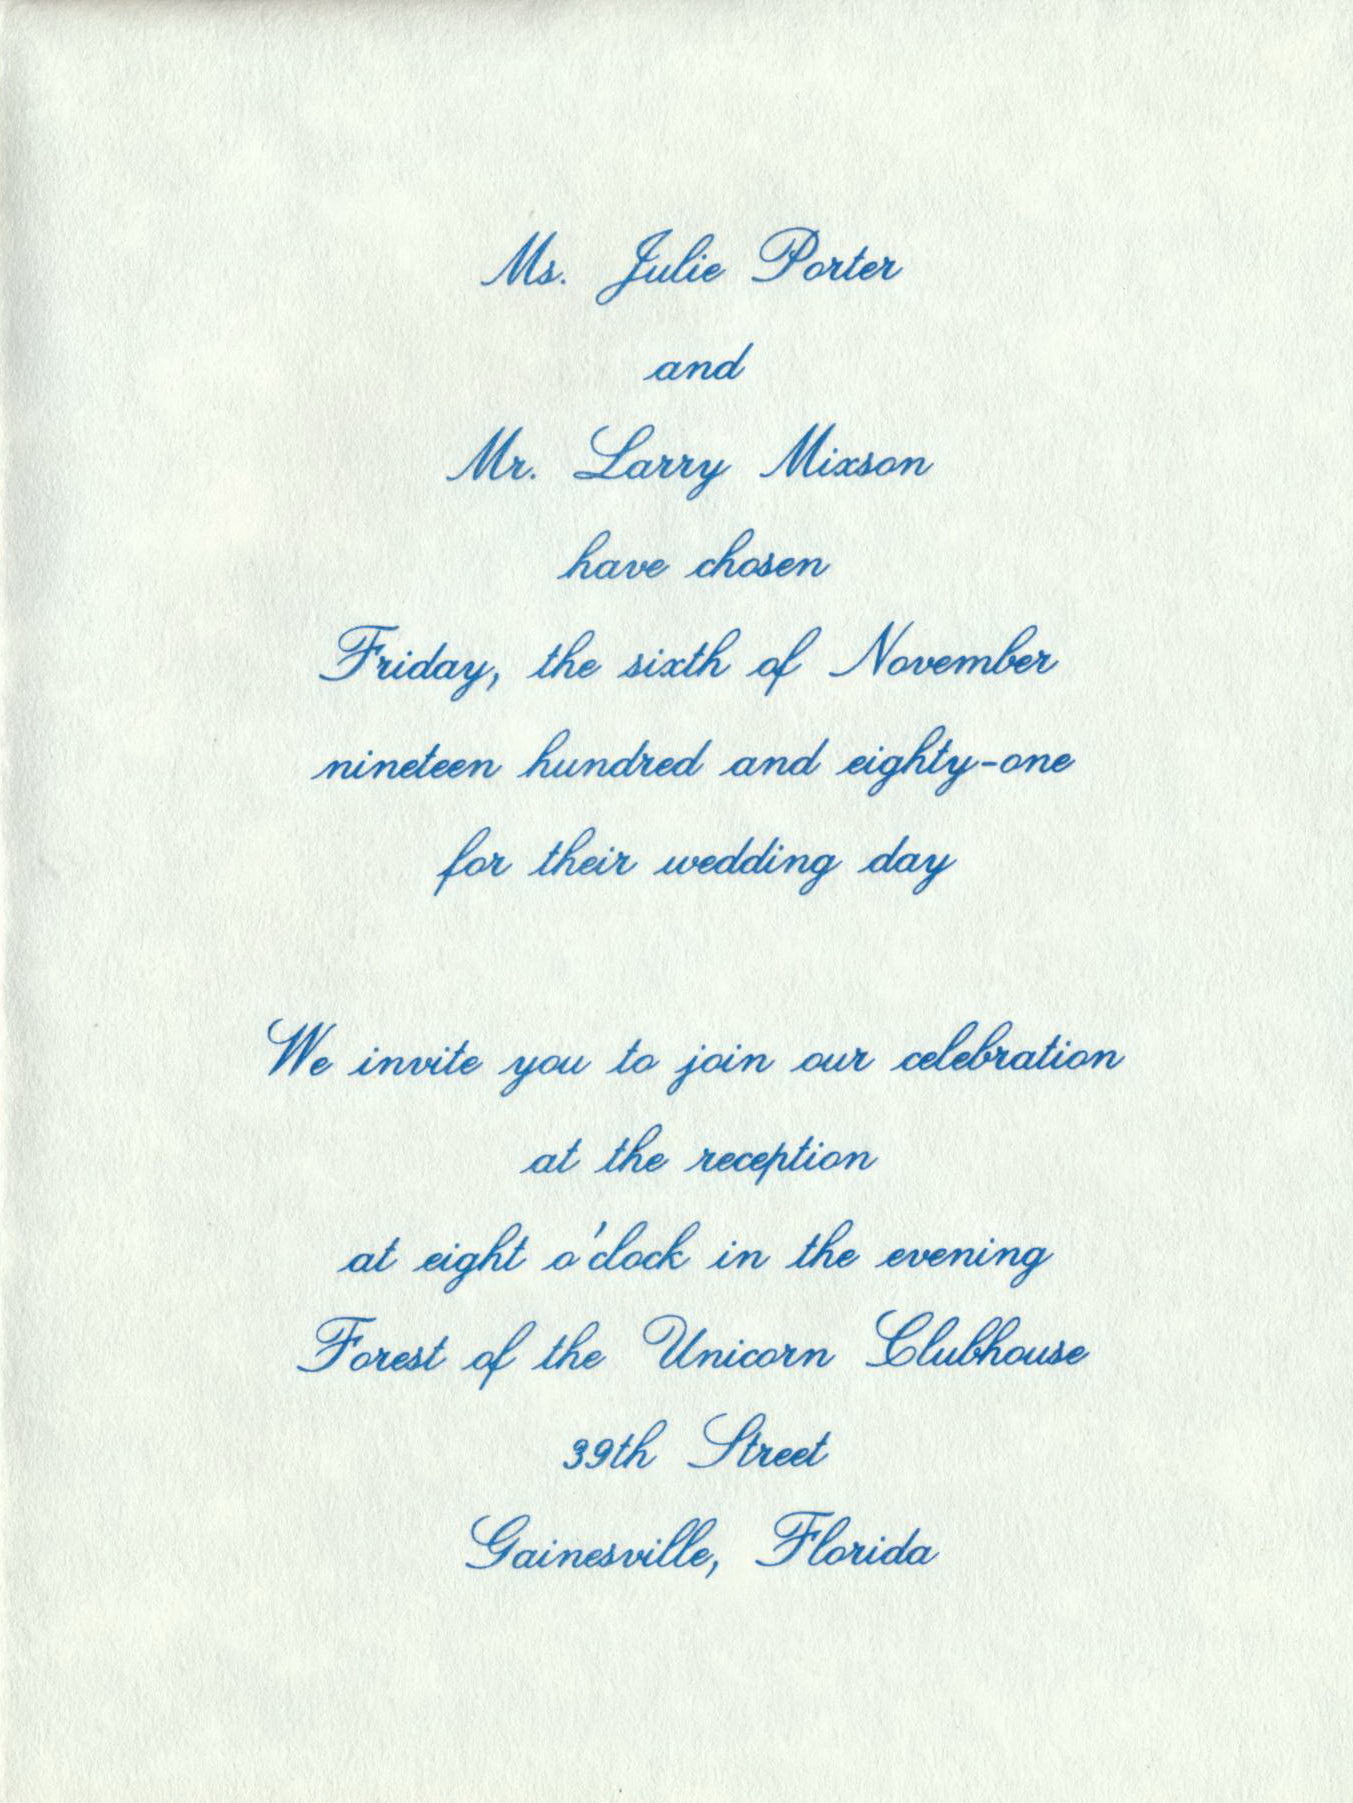 Ms. Julie Porter
and
Mr. Larry Mixson
have chosen
Friday, the sixth of November
nineteen hundred and eighty-one
for their wedding day
We invite you to join our celebration
at the reception
at eight o'clock in the evening
Forest of the Unicorn Clubhouse
39th Street
Gainesville, Florida